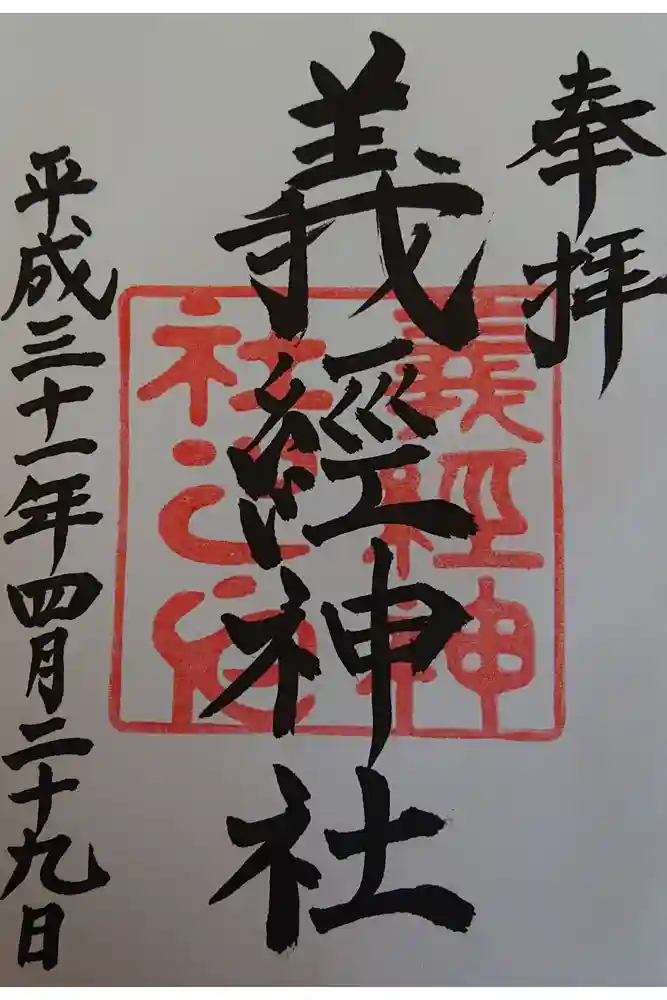 奉拝
義經神社
義經神
社
平成三十一年四月二十九日